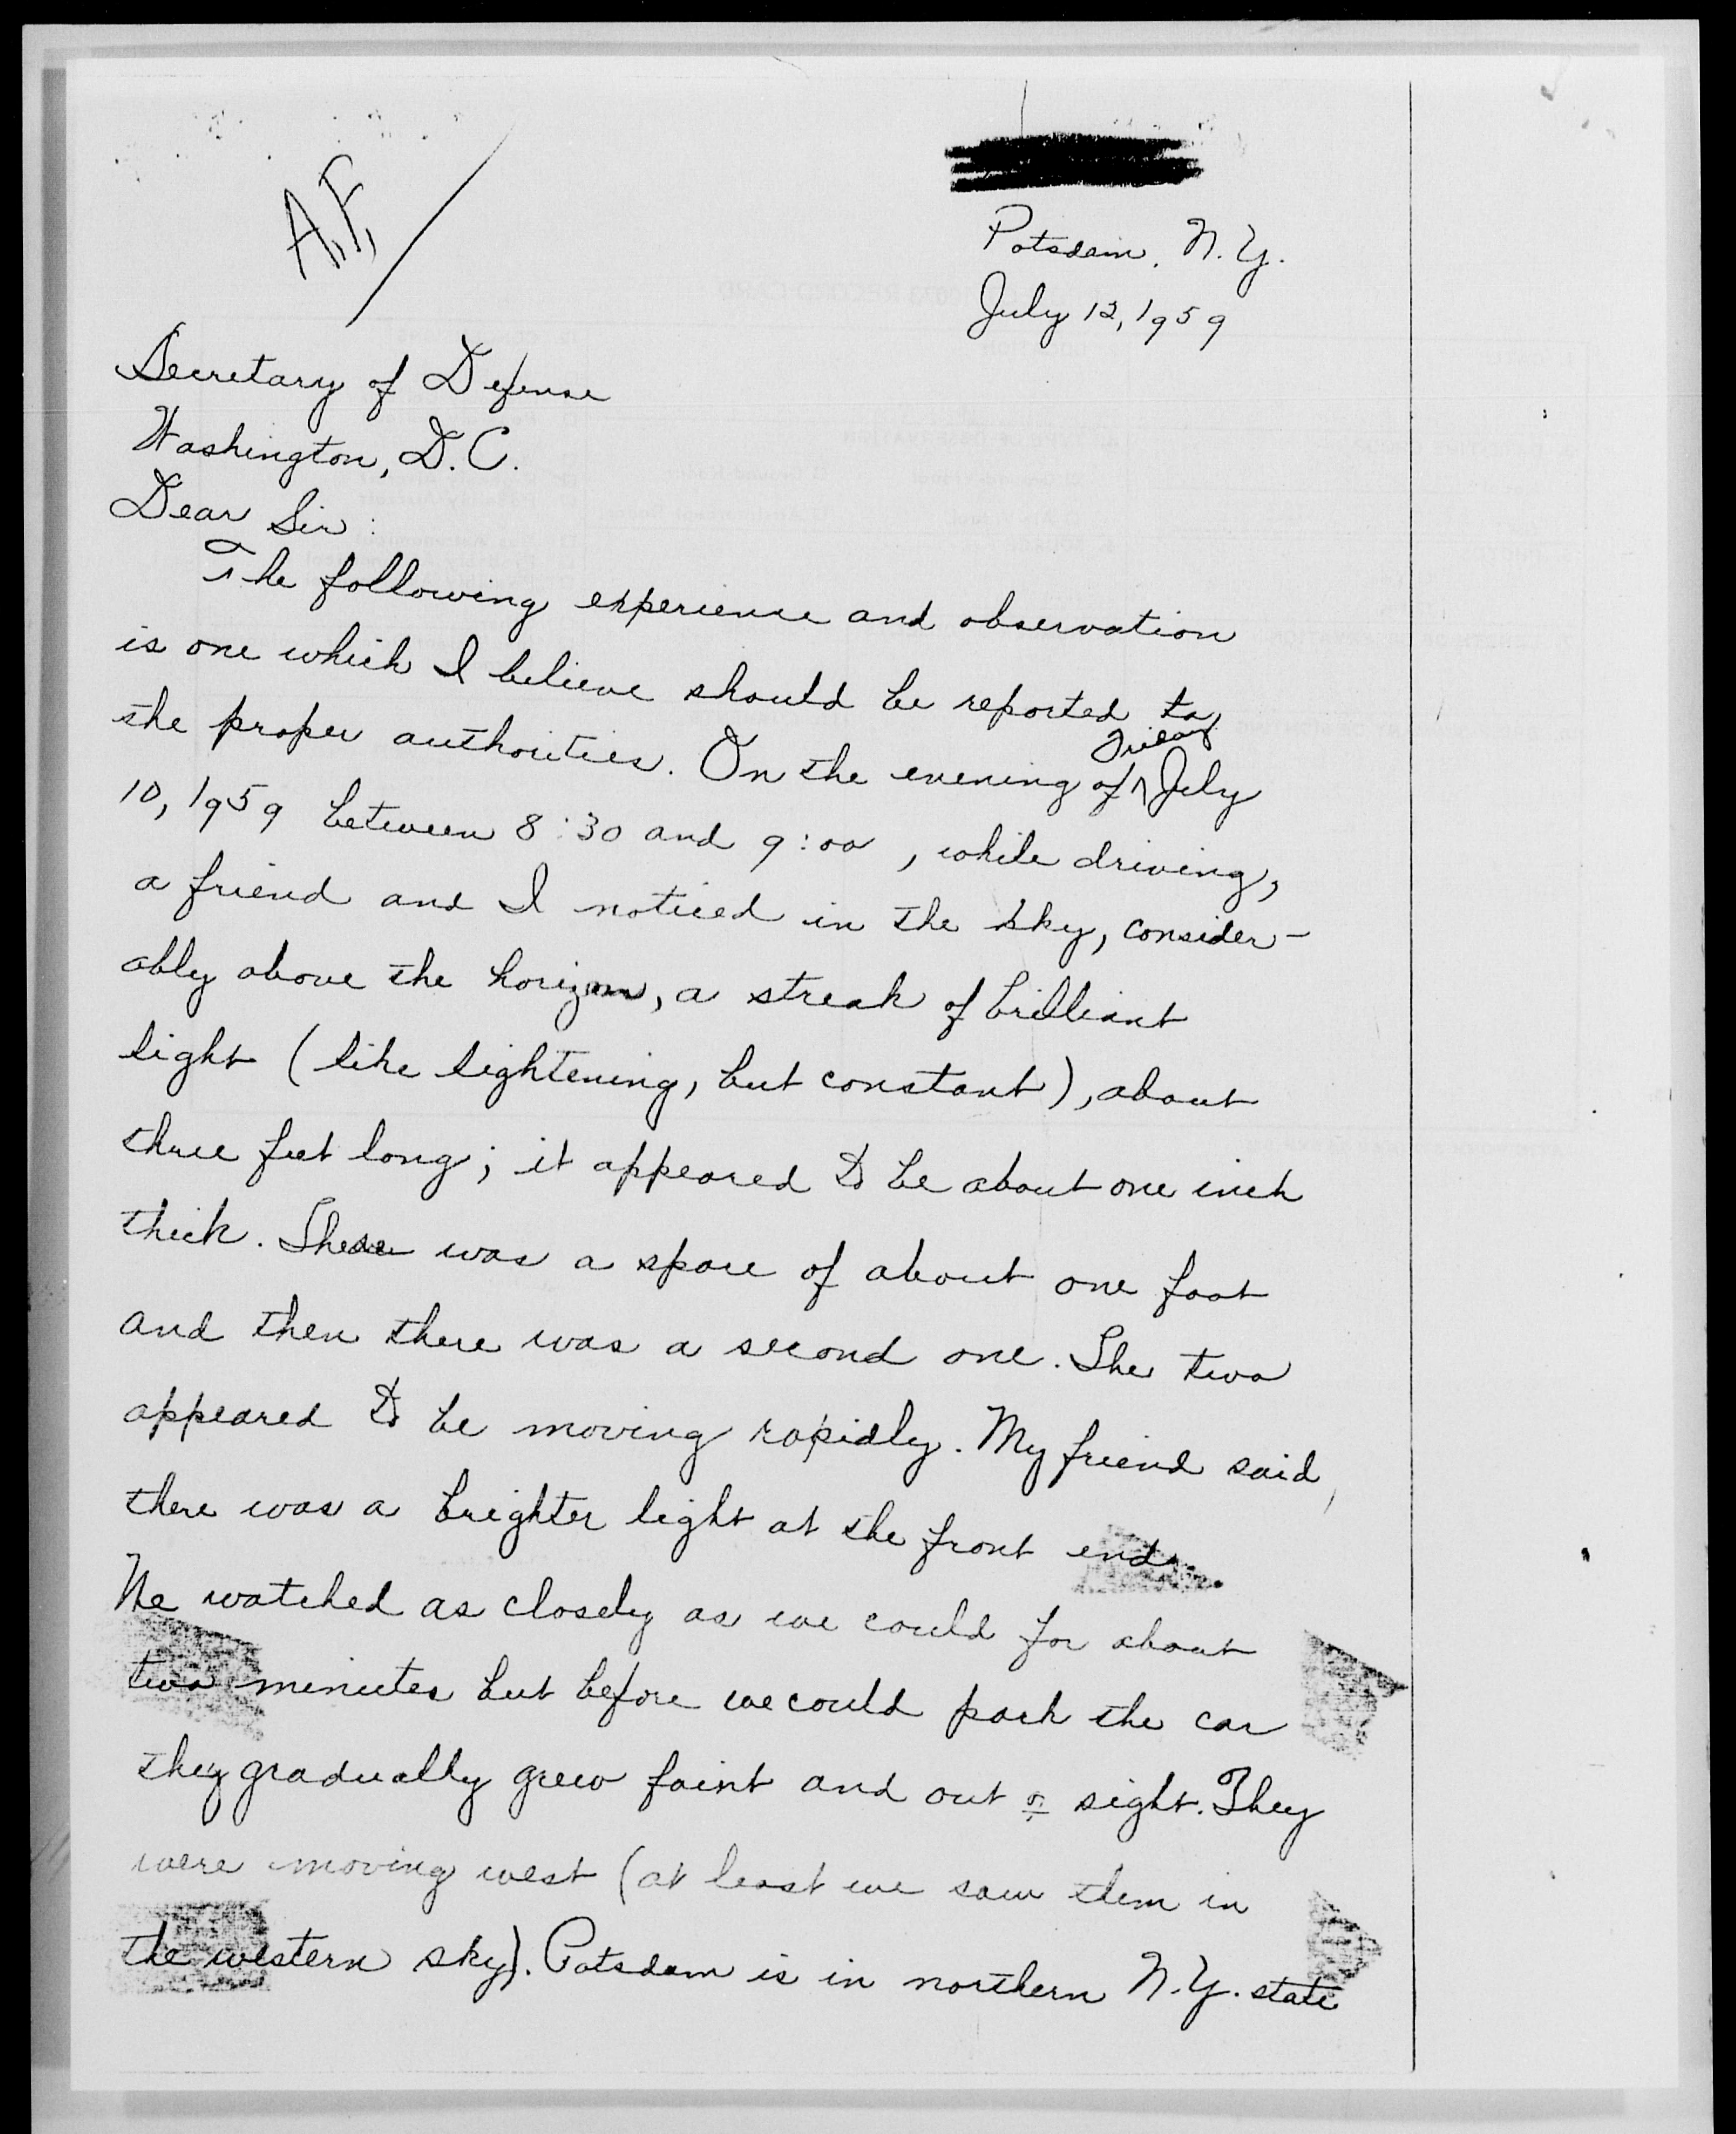 A.F.
Potsdam, N.Y.
July 12, 1959
Secretary of Defense
Washington, D.C.
Dear Sir:
The following experience and observation
is one which I believe should be reported to
the proper authorities. On the evening of ^ Friday July
10, 1959 between 8:30 and 9:00, while driving,
a friend and I noticed in the sky, consider-
ably above the horizon, a streak of brilliant
light (like lightening, but constant), about
three feet long; it appeared to be about one inch
thick. There was a space of about one foot
and then there was a second one. The two
appeared to be moving rapidly. My friend said
there was a brighter light at the front end.
We watched as closely as we could for about
two minutes but before we could park the car
they gradually grew faint and out of sight. They
were moving west (at least we saw them in
the western sky). Potsdam is in northern N.Y. state